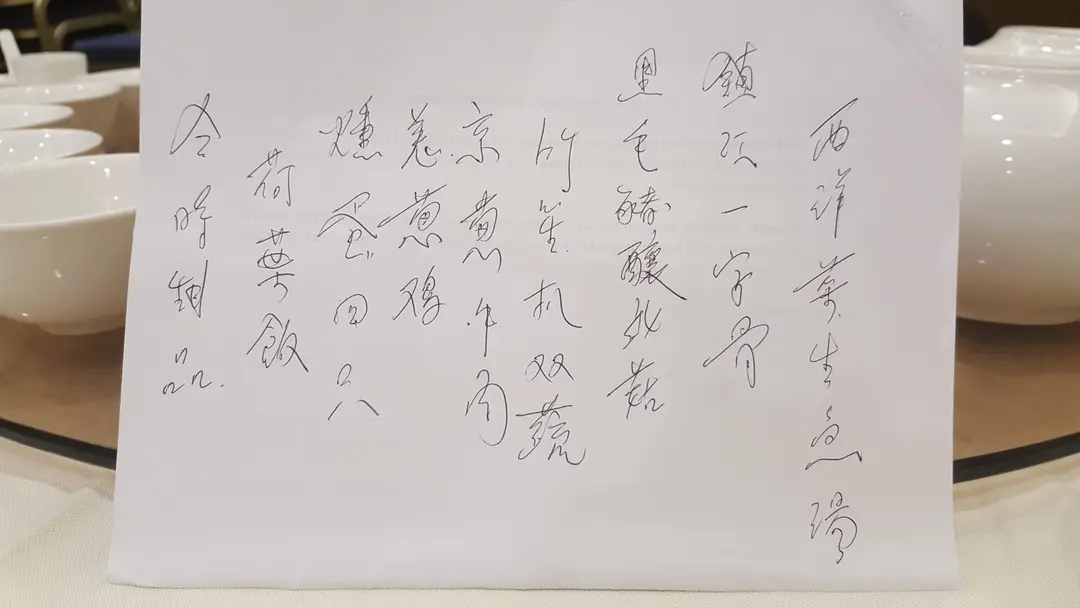 西洋菜生魚湯
鎮江一字骨
黑毛豬釀北菇
竹笙扒双蔬
京蔥牛肉
羗蔥鸡
燻蛋四只
荷葉飯
令時制品